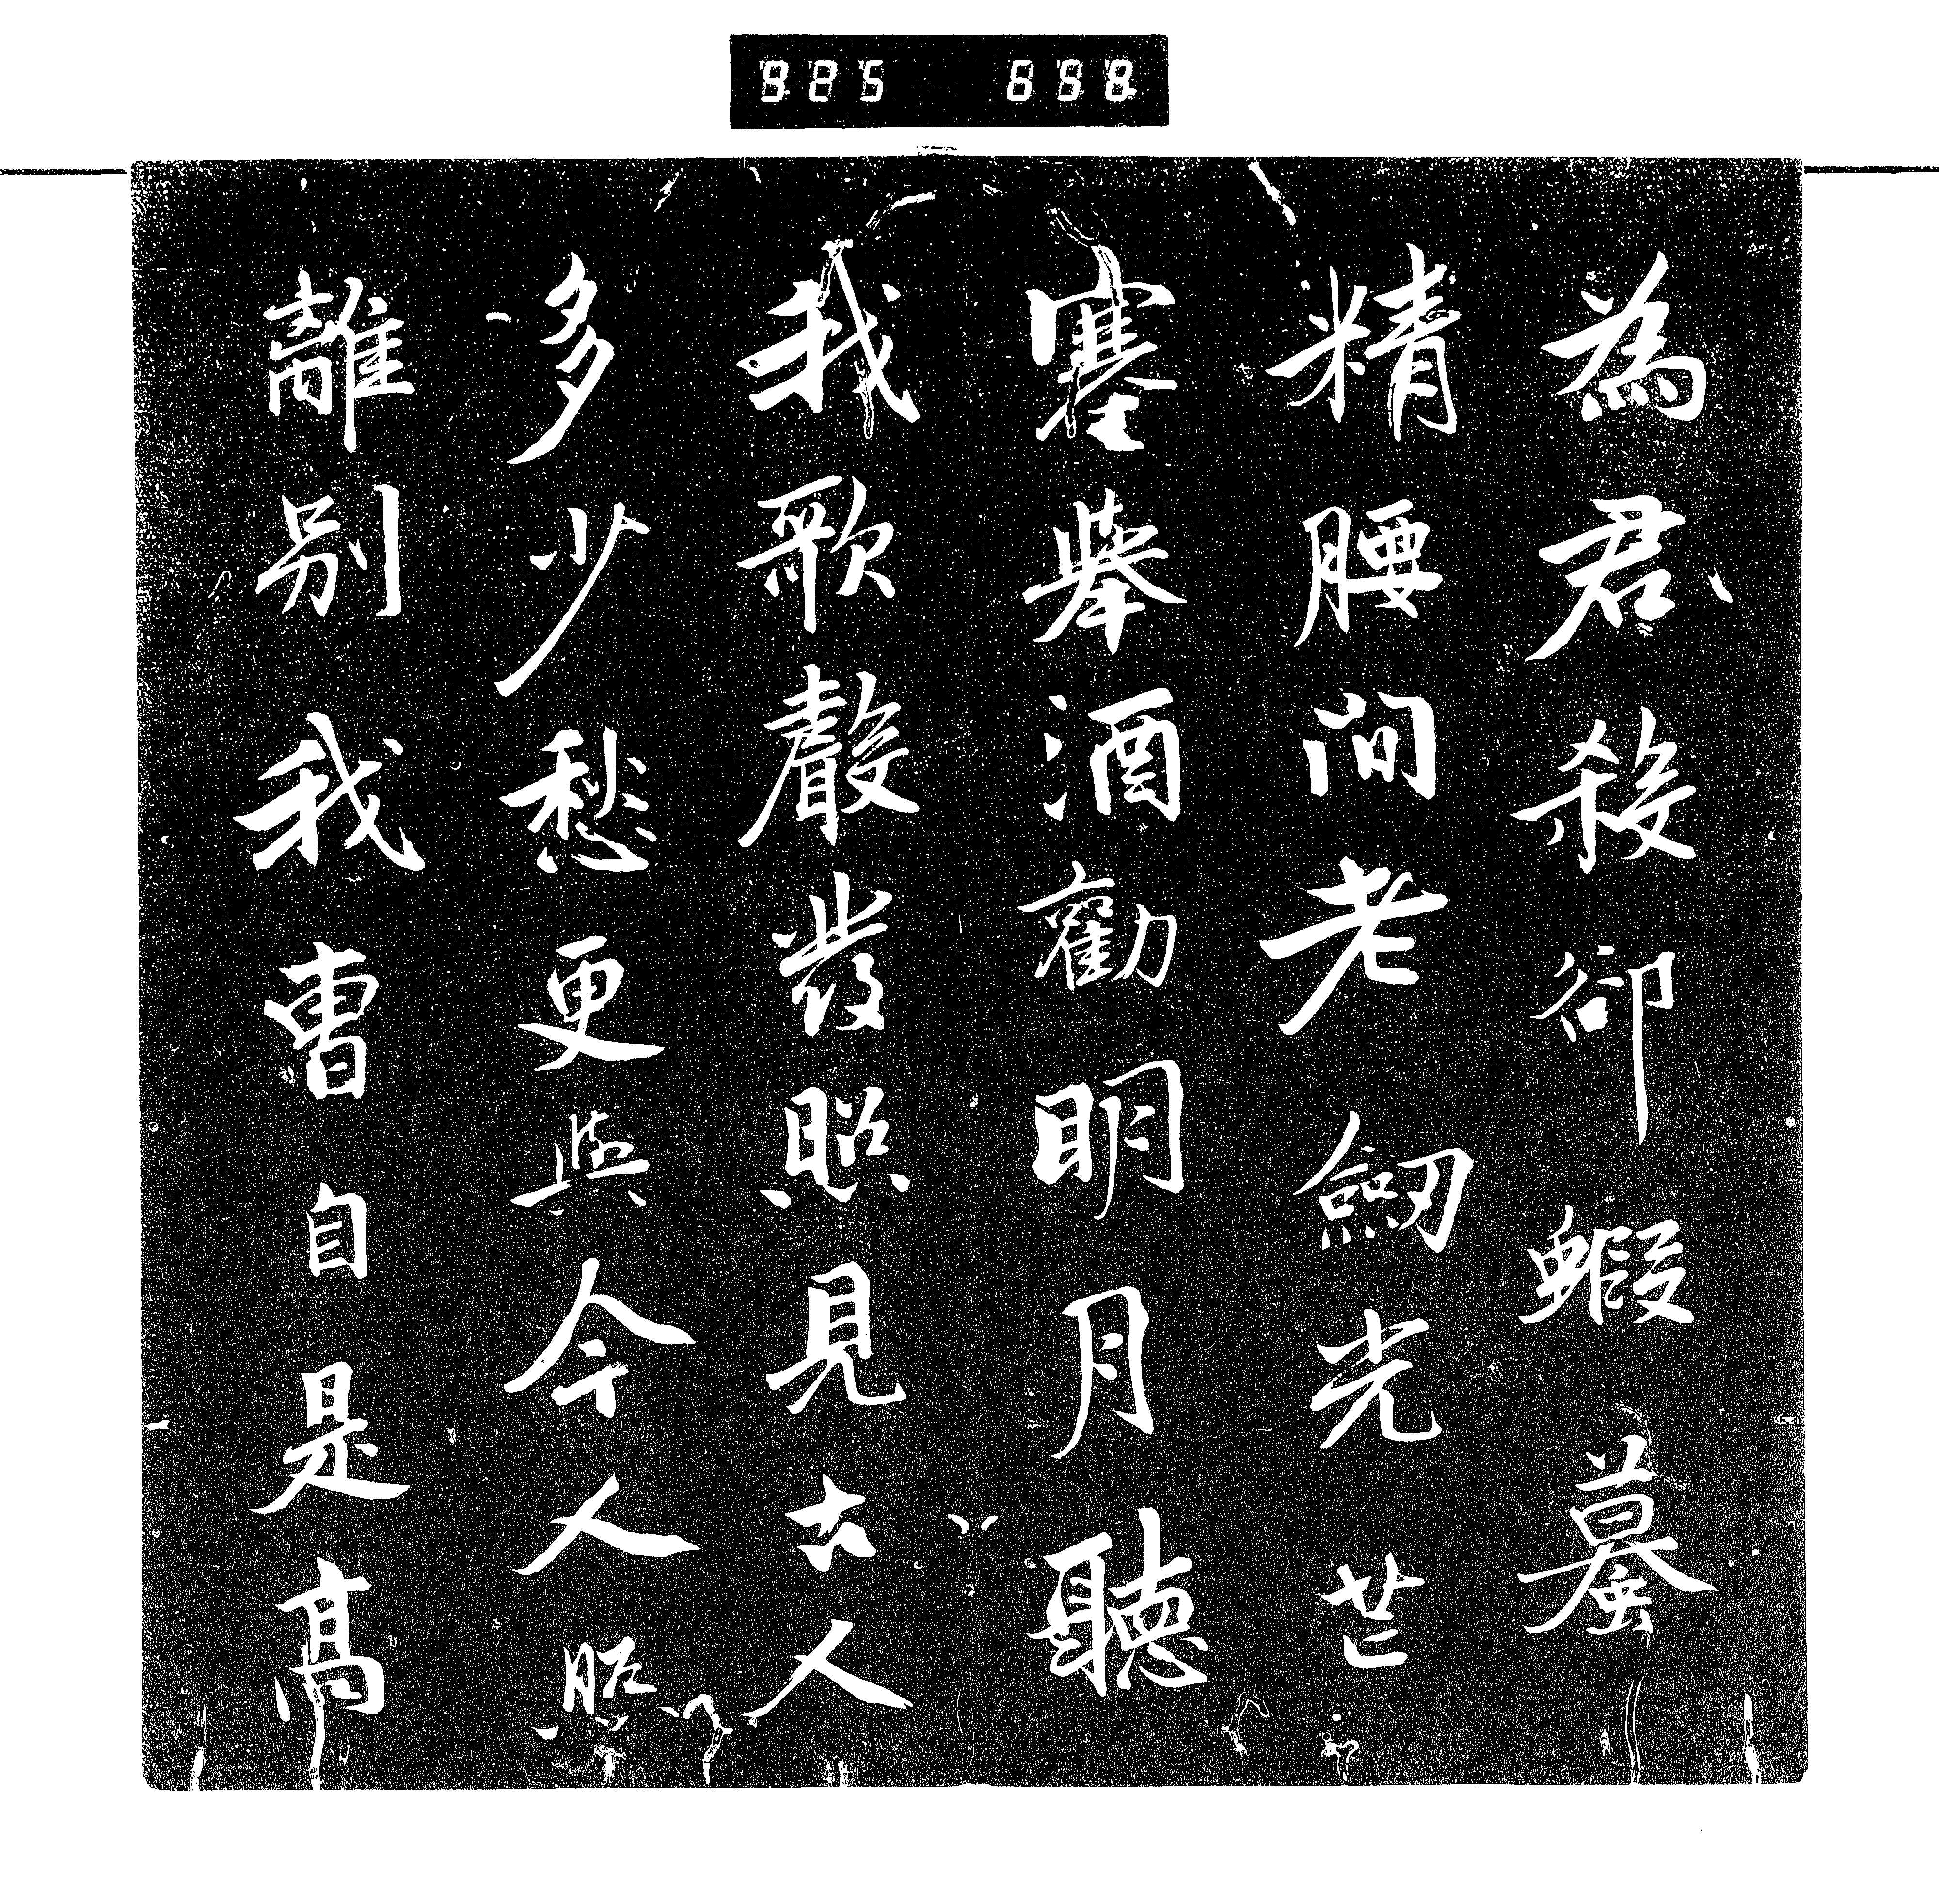 925 658
為君殺卻蝦蟇
精腰間老劒光芒
塞舉酒勸明月聽
我歌聲發照見古人
多少愁更與今人照
離別我曹自是高